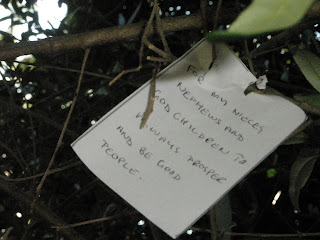 FOR MY NIECES
NEPHEWS AND
GOD CHILDREN TO
ALWAYS PROSPER
AND BE GOOD
PEOPLE.